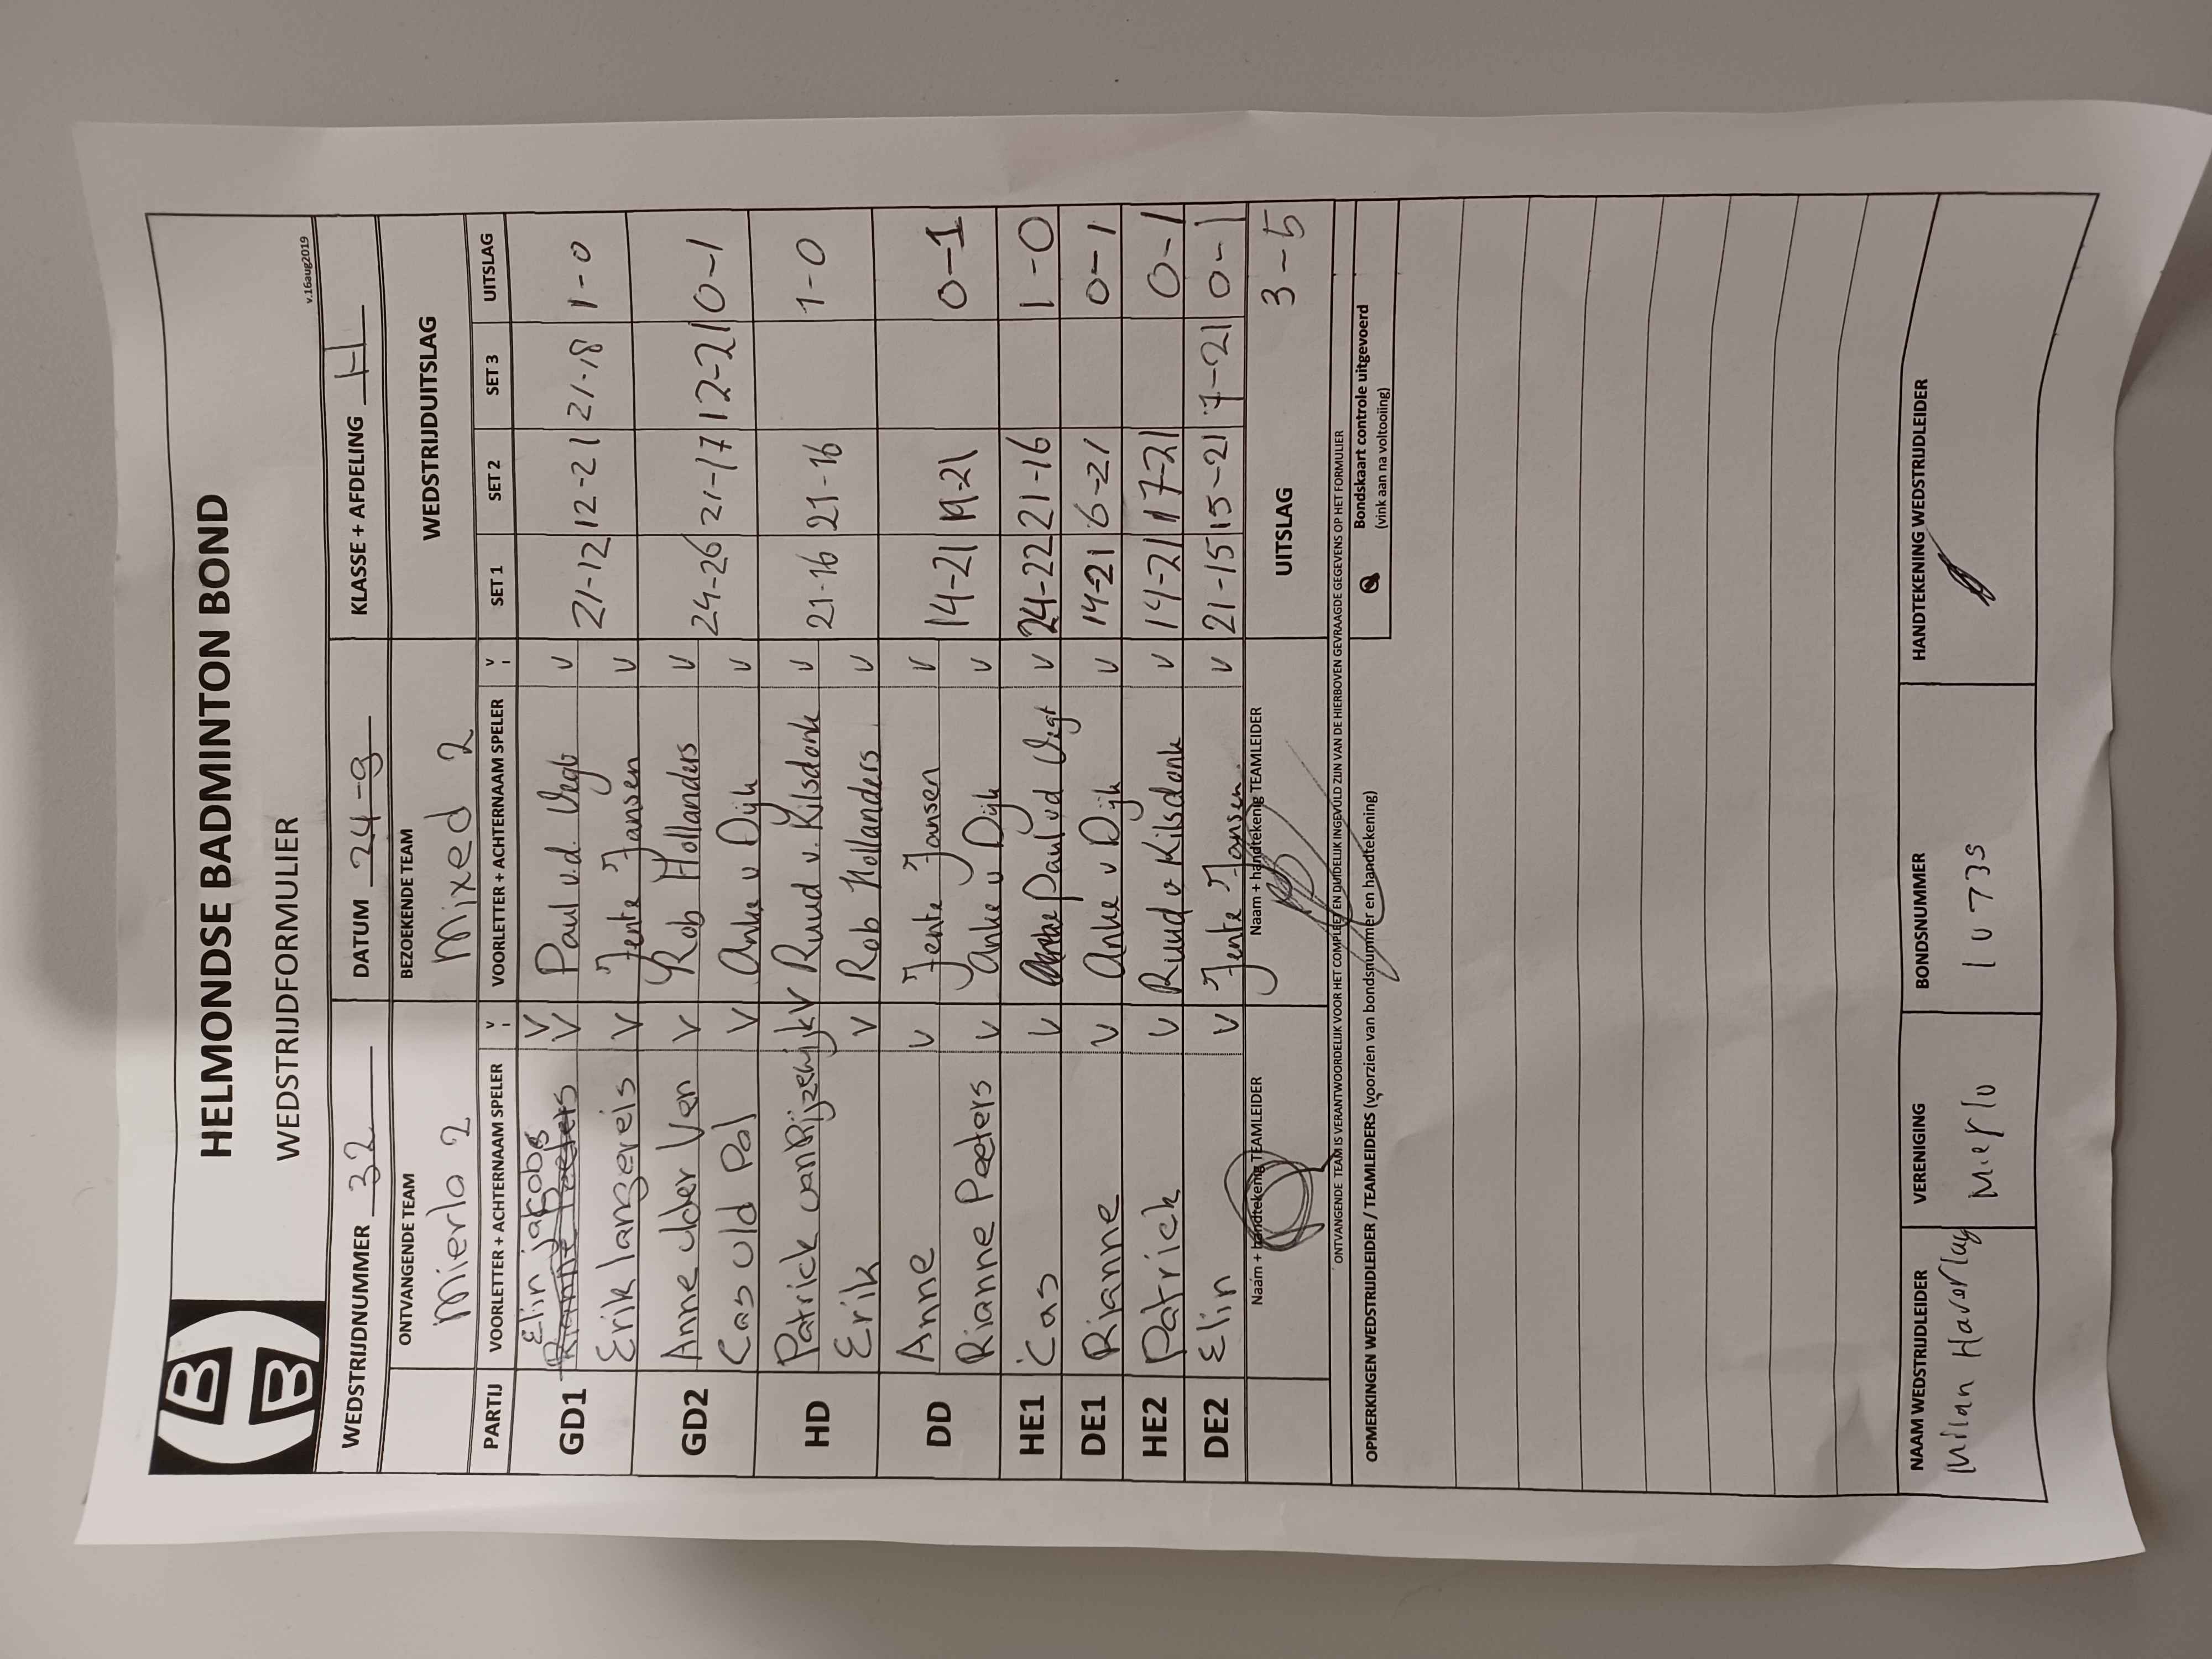 HELMONDSE BADMINTON BOND
WEDSTRIJDFORMULIER
v.16aug2019
WEDSTRIJDNUMMER 32 DATUM 24-9 KLASSE + AFDELING H
ONTVANGENDE TEAM BEZOEKENDE TEAM WEDSTRIJDUITSLAG
Mierlo 2 Mixed 2
PARTIJ VOORLETTER + ACHTERNAAM SPELER V VOORLETTER + ACHTERNAAM SPELER V SET 1 SET 2 SET 3 UITSLAG
Elin jacobs V
GD1 Rianne Peeters V Paul v.d. Vegt V
Erik langereis V Jente Jansen V 21-12 12-21 21-18 1-0
GD2 Anne v/der Ven V Rob Hollanders V
Cas v/d Pol V Anke v Dijk V 24-26 21-17 12-21 0-1
HD Patrick van Rijzewijk V Ruud v. Kilsdonk V
Erik V Rob Hollanders V 21-16 21-16 1-0
DD Anne V Jente Jansen V
Rianne Peeters V Anke v Dijk V 14-21 19-21 0-1
HE1 Cas V Paul vd Vegt V 24-22 21-16 1-0
DE1 Rianne V Anke v Dijk V 14-21 6-21 0-1
HE2 Patrick V Ruud v Kilsdonk V 14-21 17-21 0-1
DE2 Elin V Jente Jansen V 21-15 15-21 7-21 0-1
Naam + handtekenig TEAMLEIDER Naam + handtekenig TEAMLEIDER UITSLAG 3-5
ONTVANGENDE TEAM IS VERANTWOORDELIJK VOOR HET COMPLEET EN DUIDELIJK INGEVULD ZIJN VAN DE HIERBOVEN GEVRAAGDE GEGEVENS OP HET FORMULIER
OPMERKINGEN WEDSTRIJDLEIDER / TEAMLEIDERS (voorzien van bondsnummer en handtekening)
Bondskaart controle uitgevoerd
(vink aan na voltooiing)
NAAM WEDSTRIJDLEIDER VERENIGING BONDSNUMMER HANDTEKENING WEDSTRIJDLEIDER
Milan Haverlag Mierlo 10735